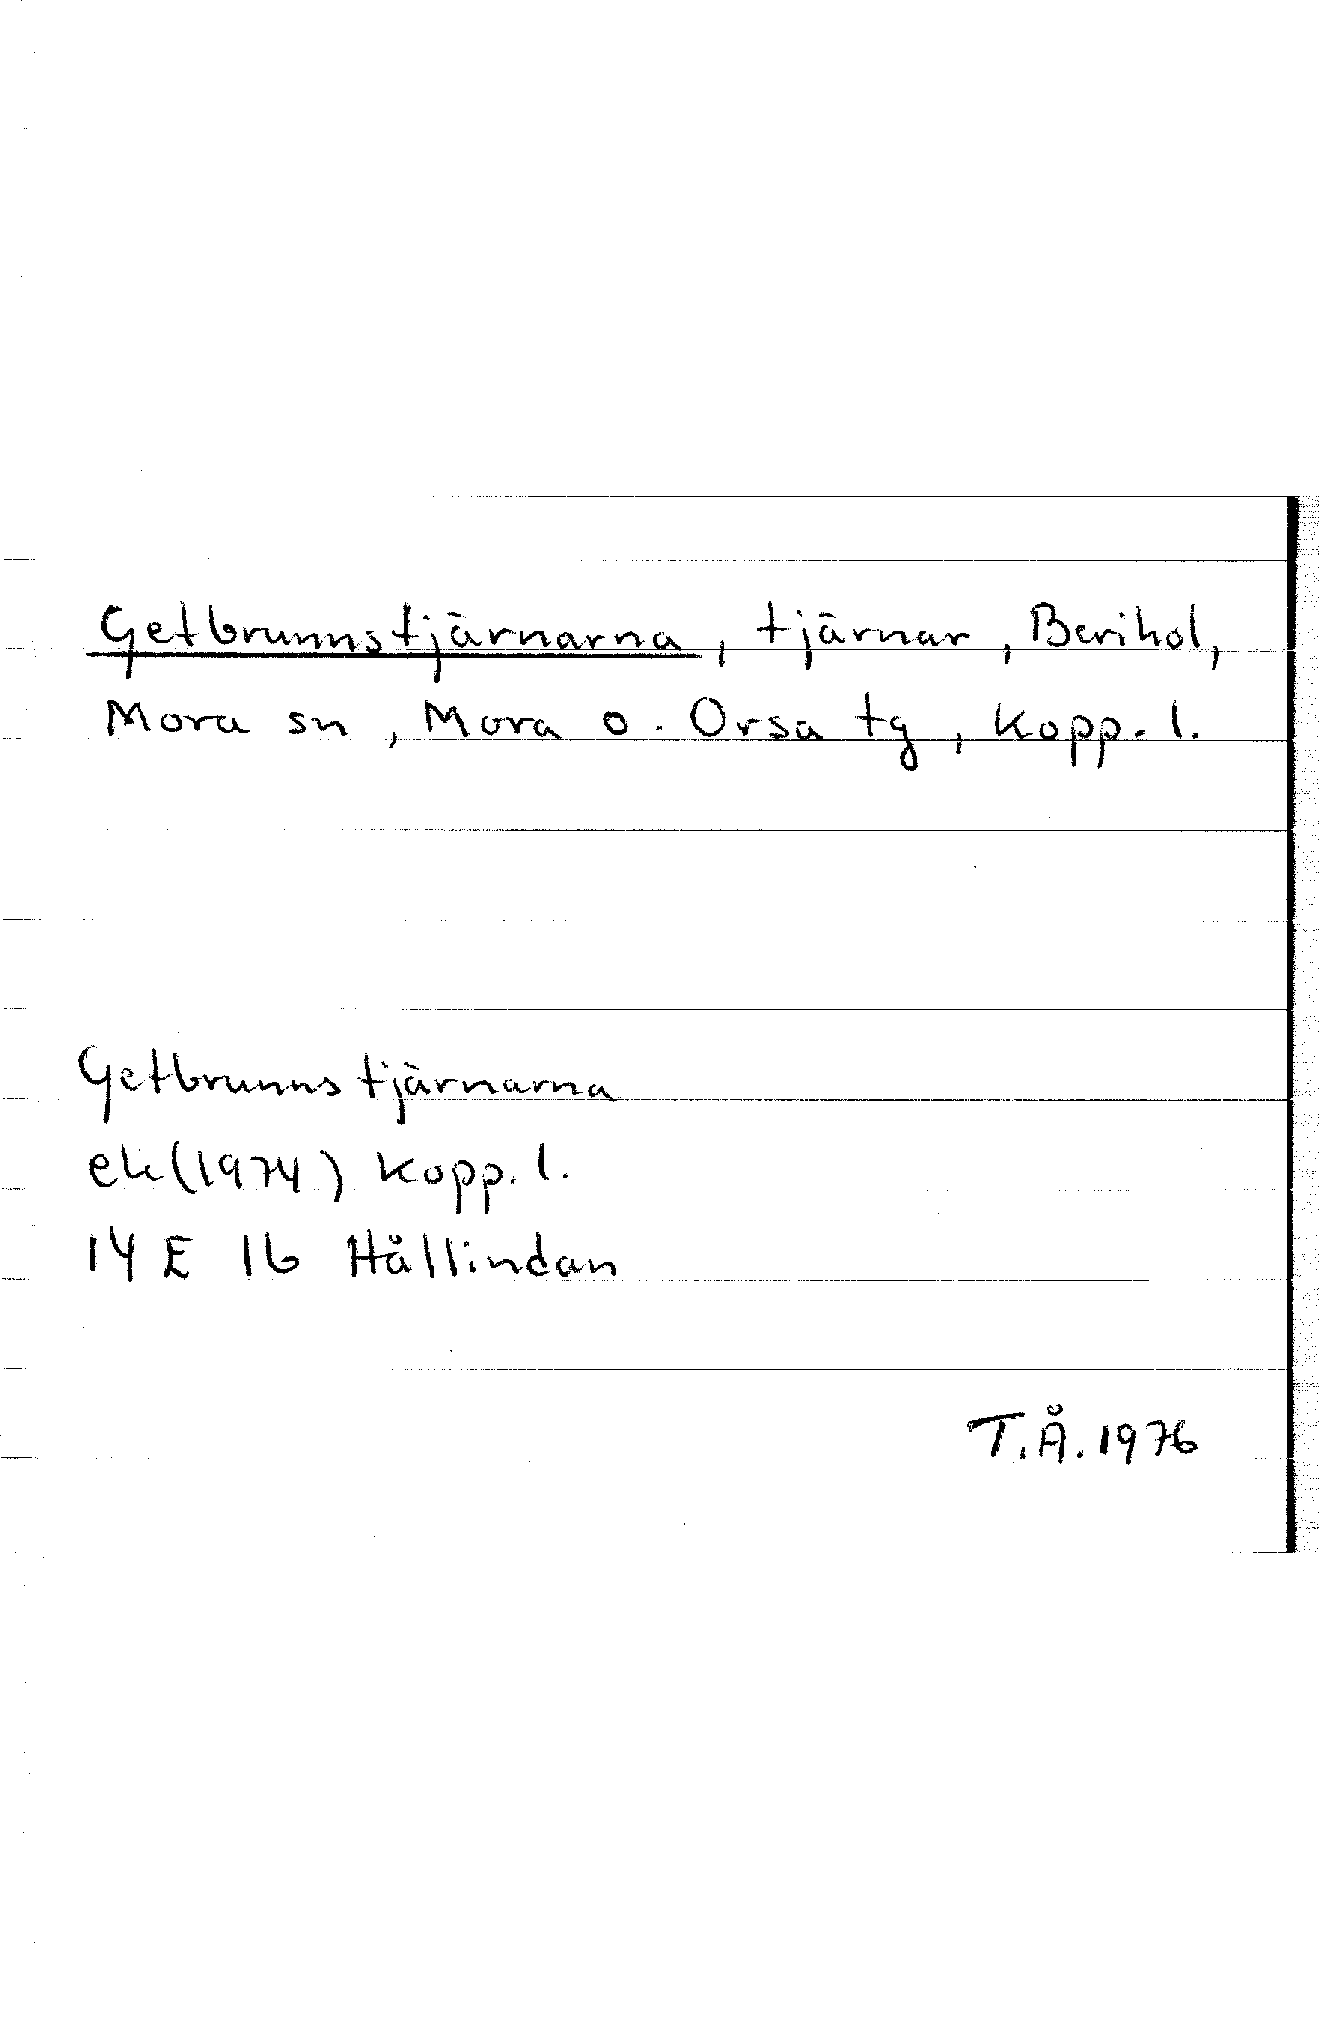 Getbrunnstjärnarna, tjärnar, Berihol,
Mora sn, Mora o. Orsa tg, Kopp. l.
Getbrunnstjärnarna
ek (1974) Kopp. l.
14 E 1b Hållindan
T.Å. 1976